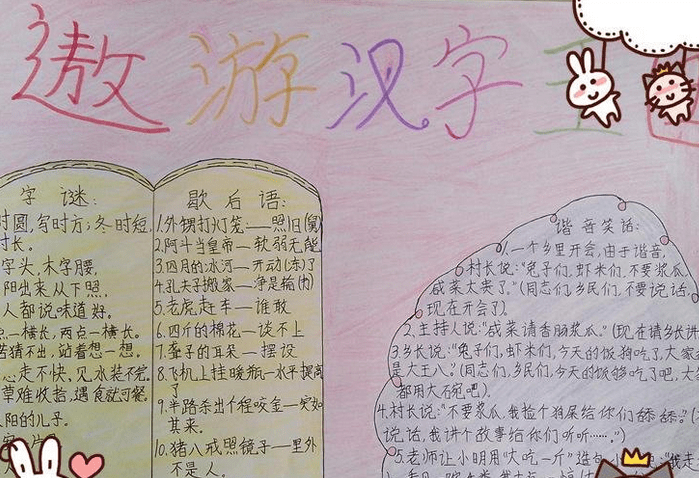 遨游汉字王
字谜:
时圆,写时方;冬时短,
时长。
字头,木字腰,
阳出来从下照,
人都说味道好。
一横长,两点一横长。
猜不出,站着想一想。
走不快,见水装不完,
草难收拾,遇食就可餐。
阳的儿子。
歇后语:
1.外甥打灯笼——照旧(舅)
2.阿斗当皇帝——软弱无能
3.四月的冰河——开动(冻)了
4.孔夫子搬家——净是输(书)
5.老虎赶车——谁敢
6.四斤的棉花——谈不上
7.聋子的耳朵——摆设
8.飞机上挂暖瓶—水平提高
了
9.半路杀出个程咬金—突如
其来。
10.猪八戒照镜子—里外
不是人。
谐音笑话:
1.一个乡里开会,由于谐音,
村长说:“兔子们,虾米们,不要浆瓜,
咸菜太贵了。”(同志们,乡民们,不要说话,
现在开会了)
2.主持人说:“咸菜请香肠浆瓜。”(现在请乡长讲
3.乡长说:“兔子们,虾米们,今天的饭狗吃了,大家
是大王八。”(同志们,乡民们,今天的饭够吃了吧,大家
都用大碗吧).
4.村长说:“不要浆瓜,我捡个狗屎给你们舔舔。”(
说话,我讲个故事给你们听听……。”)
5.老师让小明用“大吃一斤”造句,小